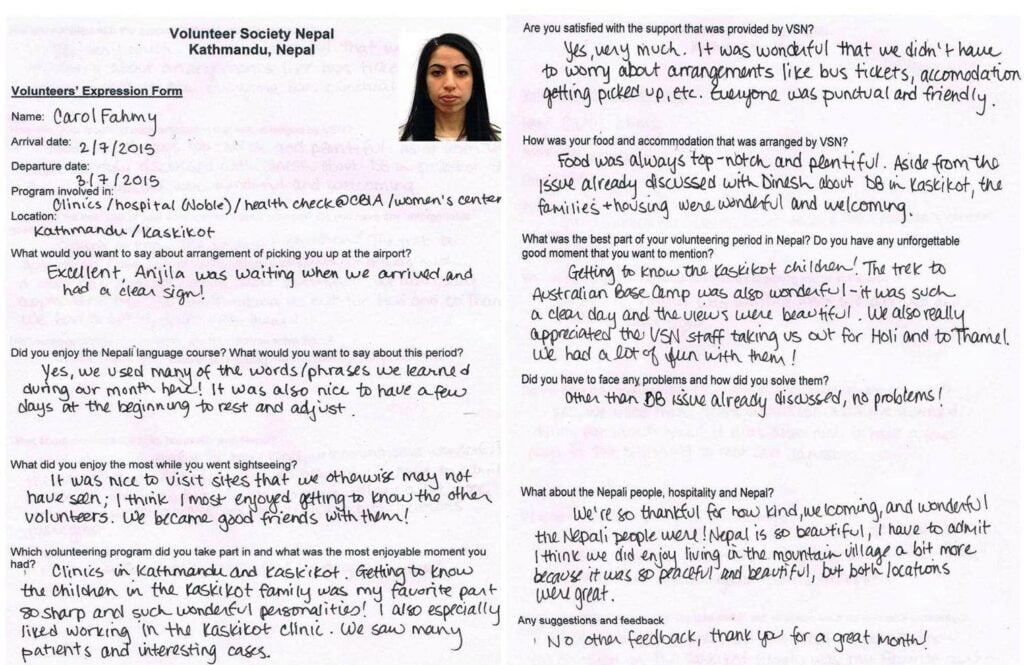 Volunteer Society Nepal
Kathmandu, Nepal
Volunteers' Expression Form
Name: Carol Fahmy
Arrival date: 2/7/2015
Departure date:
3/7/2015
Program involved in:
Clinics/hospital (Noble)/health check@OCBLA/women's center
Location:
Kathmandu/Kaskikot
What would you want to say about arrangement of picking you up at the airport?
Excellent, Anjila was waiting when we arrived and
had a clear sign!
Did you enjoy the Nepali language course? What would you want to say about this period?
Yes, we used many of the words/phrases we learned
during our month here! It was also nice to have a few
days at the beginning to rest and adjust.
What did you enjoy the most while you went sightseeing?
It was nice to visit sites that we otherwise may not
have seen; I think I most enjoyed getting to know the other
volunteers. We became good friends with them!
Which volunteering program did you take part in and what was the most enjoyable moment you
had?
Clinics in Kathmandu and Kaskikot. Getting to know
the children in the Kaskikot family was my favorite part
so sharp and such wonderful personalities! I also especially
liked working in the Kaskikot clinic. We saw many
patients and interesting cases.
Are you satisfied with the support that was provided by VSN?
Yes, very much. It was wonderful that we didn't have
to worry about arrangements like bus tickets, accomodation
getting picked up, etc. Everyone was punctual and friendly.
How was your food and accommodation that was arranged by VSN?
Food was always top-notch and plentiful. Aside from the
issue already discussed with Dinesh about DB in Kaskikot, the
families + housing were wonderful and welcoming.
What was the best part of your volunteering period in Nepal? Do you have any unforgettable
good moment that you want to mention?
Getting to know the Kaskikot children! The trek to
Australian Base Camp was also wonderful - it was such
a clear day and the views were beautiful. We also really
appreciated the VSN staff taking us out for Holi and to Thamel.
We had a lot of fun with them!
Did you have to face any problems and how did you solve them?
Other than DB issue already discussed, no problems!
What about the Nepali people, hospitality and Nepal?
We're so thankful for how kind, welcoming, and wonderful
the Nepali people were! Nepal is so beautiful, I have to admit
I think we did enjoy living in the mountain village a bit more
because it was so peaceful and beautiful, but both locations
were great.
Any suggestions and feedback
No other feedback, thank you for a great month!